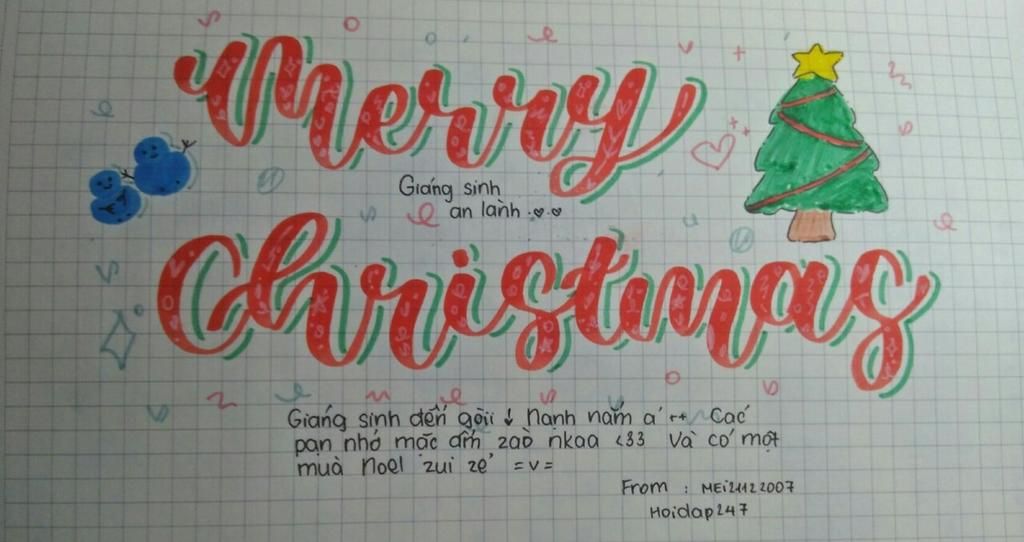 Merry
Giáng sinh
an lành
Christmas
Giáng sinh đến gòii ↓ Nạnh nắm á ++ Các
pạn nhớ mặc ấm zaò nkaa <33 Và có một
muà Noel zui zẻ =v=
From : MEi21122007
Hoidap247